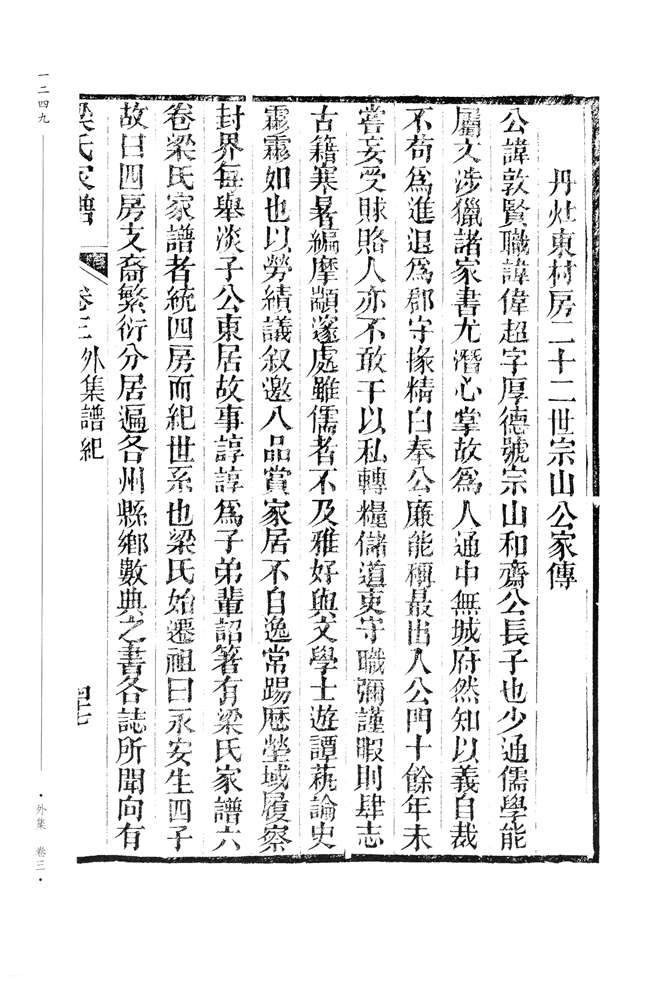 丹灶東村房二十二世宗山公家傳
公諱敦賢職諱偉超字厚德號宗山和齋公長子也少通儒學能
屬文涉獵諸家書尤潛心掌故為人通中無城府然知以義自裁
不苟為進退為郡守掾精白奉公廉能稱最出入公門十餘年未
嘗妄受賕賂人亦不敢干以私轉糧儲道吏守職彌謹暇則肆志
古籍寒暑編摩顓邃處雖儒者不及雅好與文學士遊譚藝論史
霏霏如也以勞績議叙邀八品賞家居不自逸常踢歷塋域履察
封界每舉淡子公東居故事諄諄為子弟輩詔箸有梁氏家譜六
卷梁氏家譜者統四房而紀世系也梁氏始遷祖曰永安生四子
故曰四房支裔繁衍分居遍各州縣鄉數典之書各誌所聞向有
梁氏家譜 卷三 外集譜紀 四十七
一二四九
·外集 卷三·